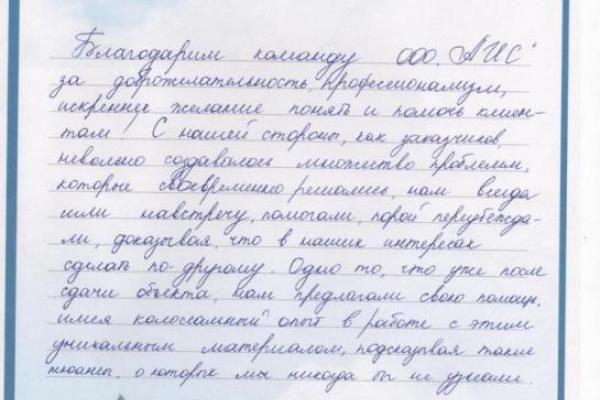 Благодарим команду ООО „АИС"
за доброжелательность, профессионализм,
искреннее желание понять и помочь клиен-
там! С нашей стороны, как заказчиков,
невольно создавалось множество проблем,
которые своевременно решались, нам всегда
шли навстречу, помогали, порой переубежда-
ли, доказывая, что в наших интересах
сделать по-другому. Одно то, что уже после
сдачи объекта, нам предлагали свою помощь,
имея колоссальный опыт в работе с этим
уникальным материалом, подсказывая такие
нюансы, о которые мы никогда бы не узнали.